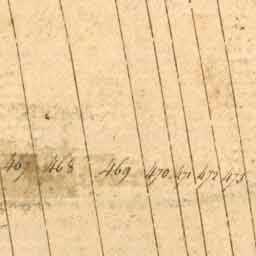 467 468 469 470 471 472 473